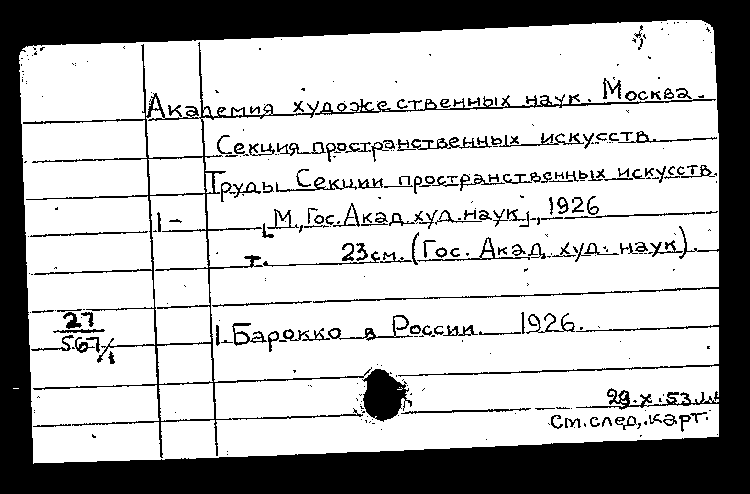 Академия художественных наук. Москва.
Секция пространственных искусств.
Труды Секции пространственных искусств.
1- [М., Гос. Акад. худ. наук], 1926
т. 23 см. (Гос. Акад. худ. наук).
27
567/1
1. Барокко в России. 1926.
29.X.53.
См. след. карт.